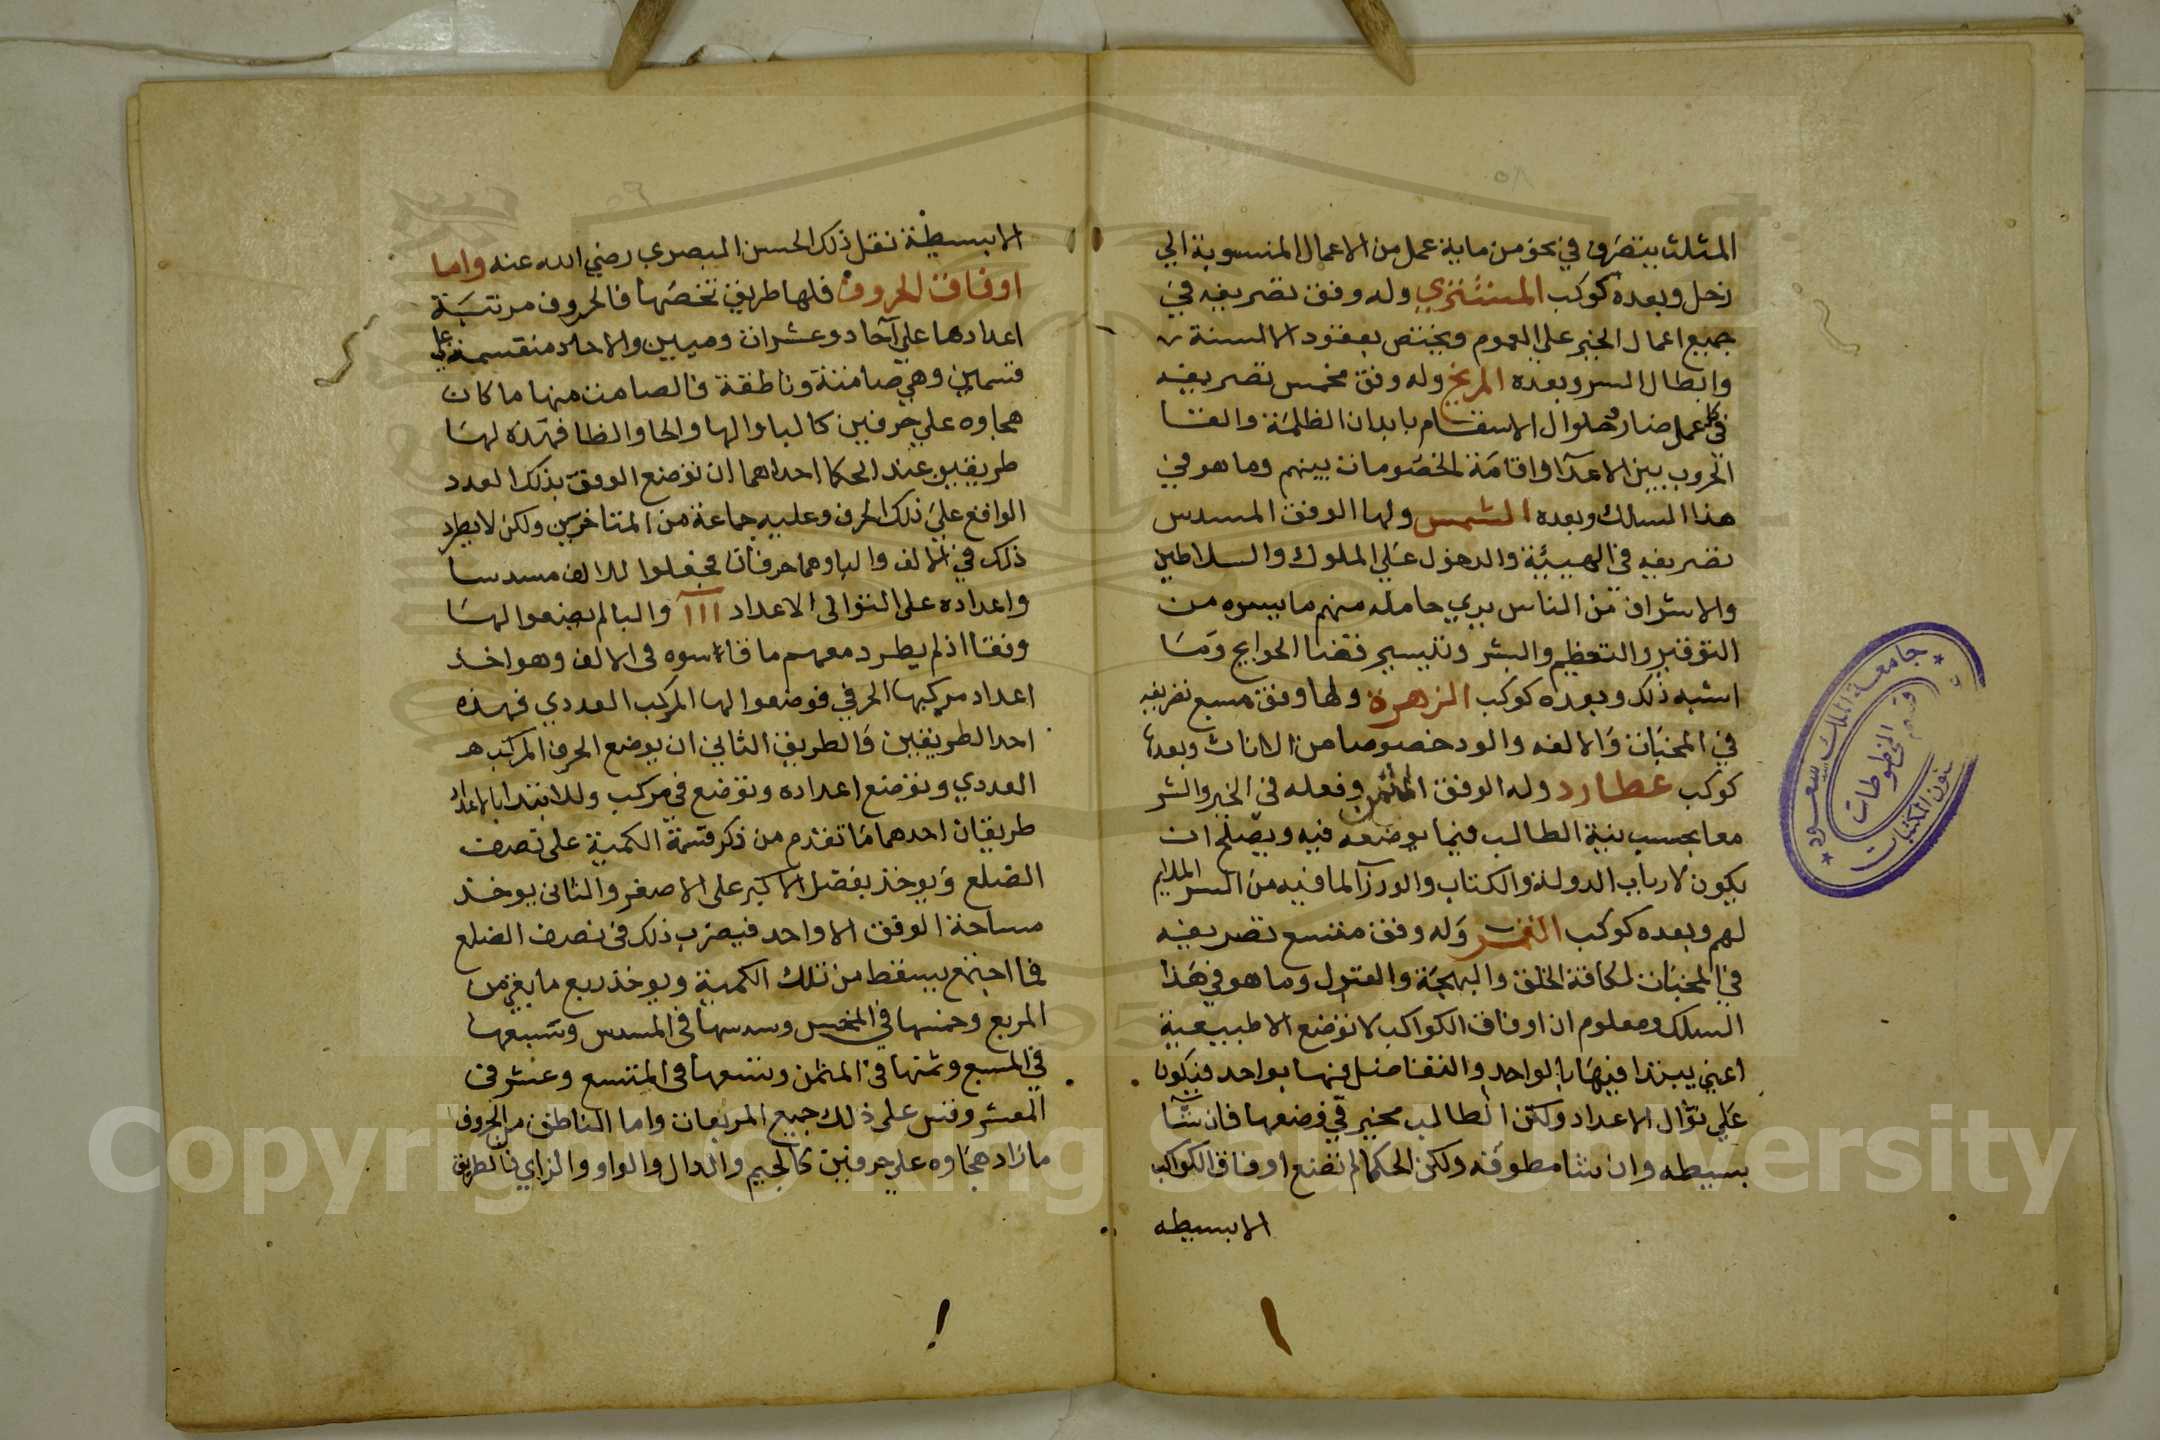 المثلث يتصرف في نحو من ماية عمل من الاعمال المنسوبة الي
زحل وبعده كوكب المشتري وله وفق تصريفه في
جميع اعمال الخير علي العموم ويختص بعقود الالسنة
وابطال السر وبعده المريخ وله وفق مخمس تصريفه
في كل عمل ضار وحلوال الاسقام بابدان الظلمة والقا
الحروب بين الاعدآ واقامة الخصومات بينهم وما هو في
هذا المسلك وبعده الشمس ولها الوفق المسدس
تصريفه في الهيبة والدخول علي الملوك والسلاطين
والاشراف من الناس يري حامله منهم ما يسره من
التوقير والتعظيم والبشر وتيسير قضا الحوايج وما
اشبه ذلك وبعده كوكب الزهرة ولها وفق مسبع تصريفه
في المحبات والالفه والود خصوصا من الاناث وبعدها
كوكب عطارد وله الوفق المثمن وفعله في الخير والشر
معا بحسب نية الطالب فيما يوضعه فيه ويصلح ان
يكون لارباب الدولة والكتاب والوزرآ لما فيه من السر الملايم
لهم وبعده كوكب القمر وله وفق متسع تصريفه
في المحبات لكافة الخلق والبهجة والقبول وما هو في هذا
السلك ومعلوم ان اوفاق الكواكب لا توضع الا طبيعية
اعني يبتدا فيها بالواحد والتفاضل فيها بواحد فيكون
علي توال الاعداد ولكن الطالب مخير في وضعها فان شآ
بسيطه وان شا مطوقه ولكن الحكما لم تضع اوفاق الكواكب
الا بسيطه
الا بسيطة نقل ذلك الحسن البصري رضي الله عنه واما
اوفاق الحروف فلها طريق تخصها فالحروف مرتبة
اعدادها علي آحاد وعشرات وميين والاحاد منقسمة علي
قسمين وهي صامتة وناطقة فالصامت منها ما كان
هجاوه علي حرفين كالبا والها والحا والظا فهذه لها
طريقين عند الحكما احداهما ان توضع الوفق بذلك العدد
الواقع علي ذلك الحرف وعليه جماعة من المتاخرين ولكن لا يطرد
ذلك في الالف والبا وهما حرفان فجعلوا للالف مسدسا
واعداده علي التوالي الاعداد ااا والبا لم يضعوا لها
وفقا اذ لم يطرد معهم ما قاسوه في الالف وهو اخذ
اعداد مركبها الحرفي فوضعوا لها المركب العددي فهذه
احد الطريقين والطريق الثاني ان يوضع الحرف المركب
العددي وتوضع اعداده وتوضع في مركب وللابتدا بالاعداد
طريقان احدهما ما تقدم من ذكر قسمة الكمية علي نصف
الضلع ويوخذ بفضل الاكبر علي الاصغر والثاني يوخذ
مساحة الوفق الا واحد فيضرب ذلك في نصف الضلع
فما اجتمع يسقط من تلك الكمية ويوخذ ربع ما بقي من
المربع وخمسها في المخمس وسدسها في المسدس وسبعها
في المسبع وثمنها في المثمن وتسعها في المتسع وعشر في
المعشر وقس علي ذلك جميع المربعات واما الناطق من الحروف
ما زاد هجاوه علي حرفين كالجيم والدال والواو والزاي فالطريق
جامعة الملك سعود
قسم المخطوطات
شؤون المكتبات
Copyright © King Saud University